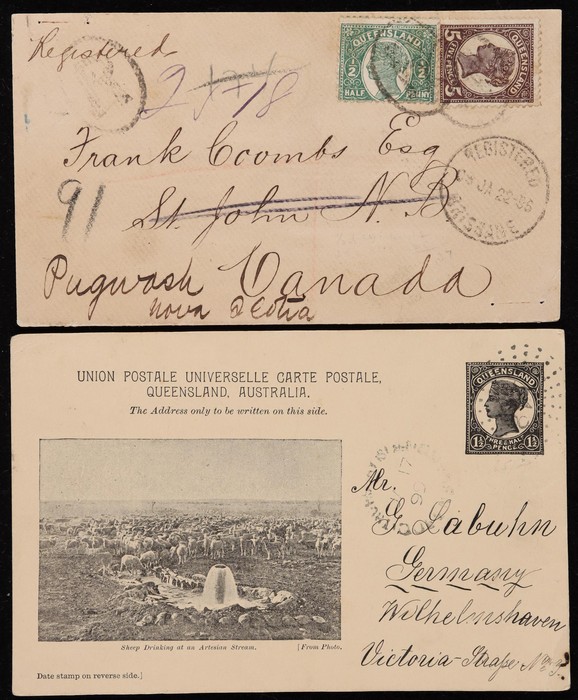 Registered
2 1718
QUEENSLAND
1/2 1/2
HALF PENNY
QUEENSLAND
5 5
FIVE PENCE
Frank Coombs Esq
St. John N.B
91
REGISTERED
BRISBANE
Pugwash Canada
Nova Scotia
UNION POSTALE UNIVERSELLE CARTE POSTALE,
QUEENSLAND, AUSTRALIA.
The Address only to be written on this side.
QUEENSLAND
1½ 1½
THREE HALF
PENCE
Mr.
G. Labuhn
Germany
Wilhelmshaven
Victoria-Straße
Sheep Drinking at an Artesian Stream. [From Photo.
Date stamp on reverse side.]